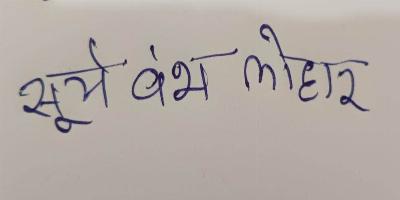 सूर्य वंश लोहार